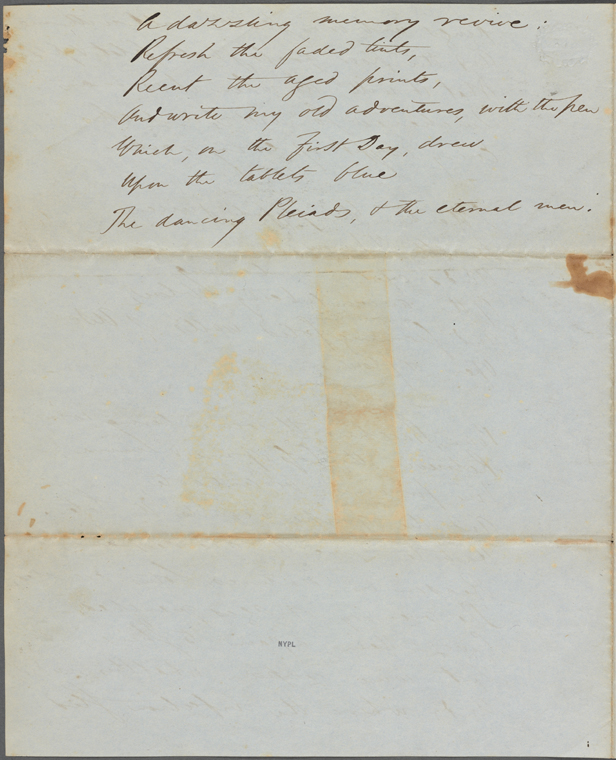 A dazzling memory revive:
Refresh the faded tints,
Recut the aged prints,
And write my old adventures, with the pen
Which, on the First Day, drew
Upon the tablets blue
The dancing Pleiads, & the eternal men.
NYPL